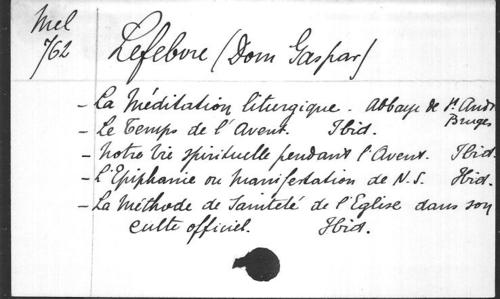 Mel
762
Lefebvre (Dom Gaspar)
- La Méditation liturgique. Abbaye de St. André
Bruges
- Le Temps de l'Avent. Ibid.
- Notre vie spirituelle pendant l'Avent. Ibid.
- L'Epiphanie ou manifestation de N.S. Ibid.
- La Méthode de Sainteté de l'Eglise dans son
culte officiel. Ibid.